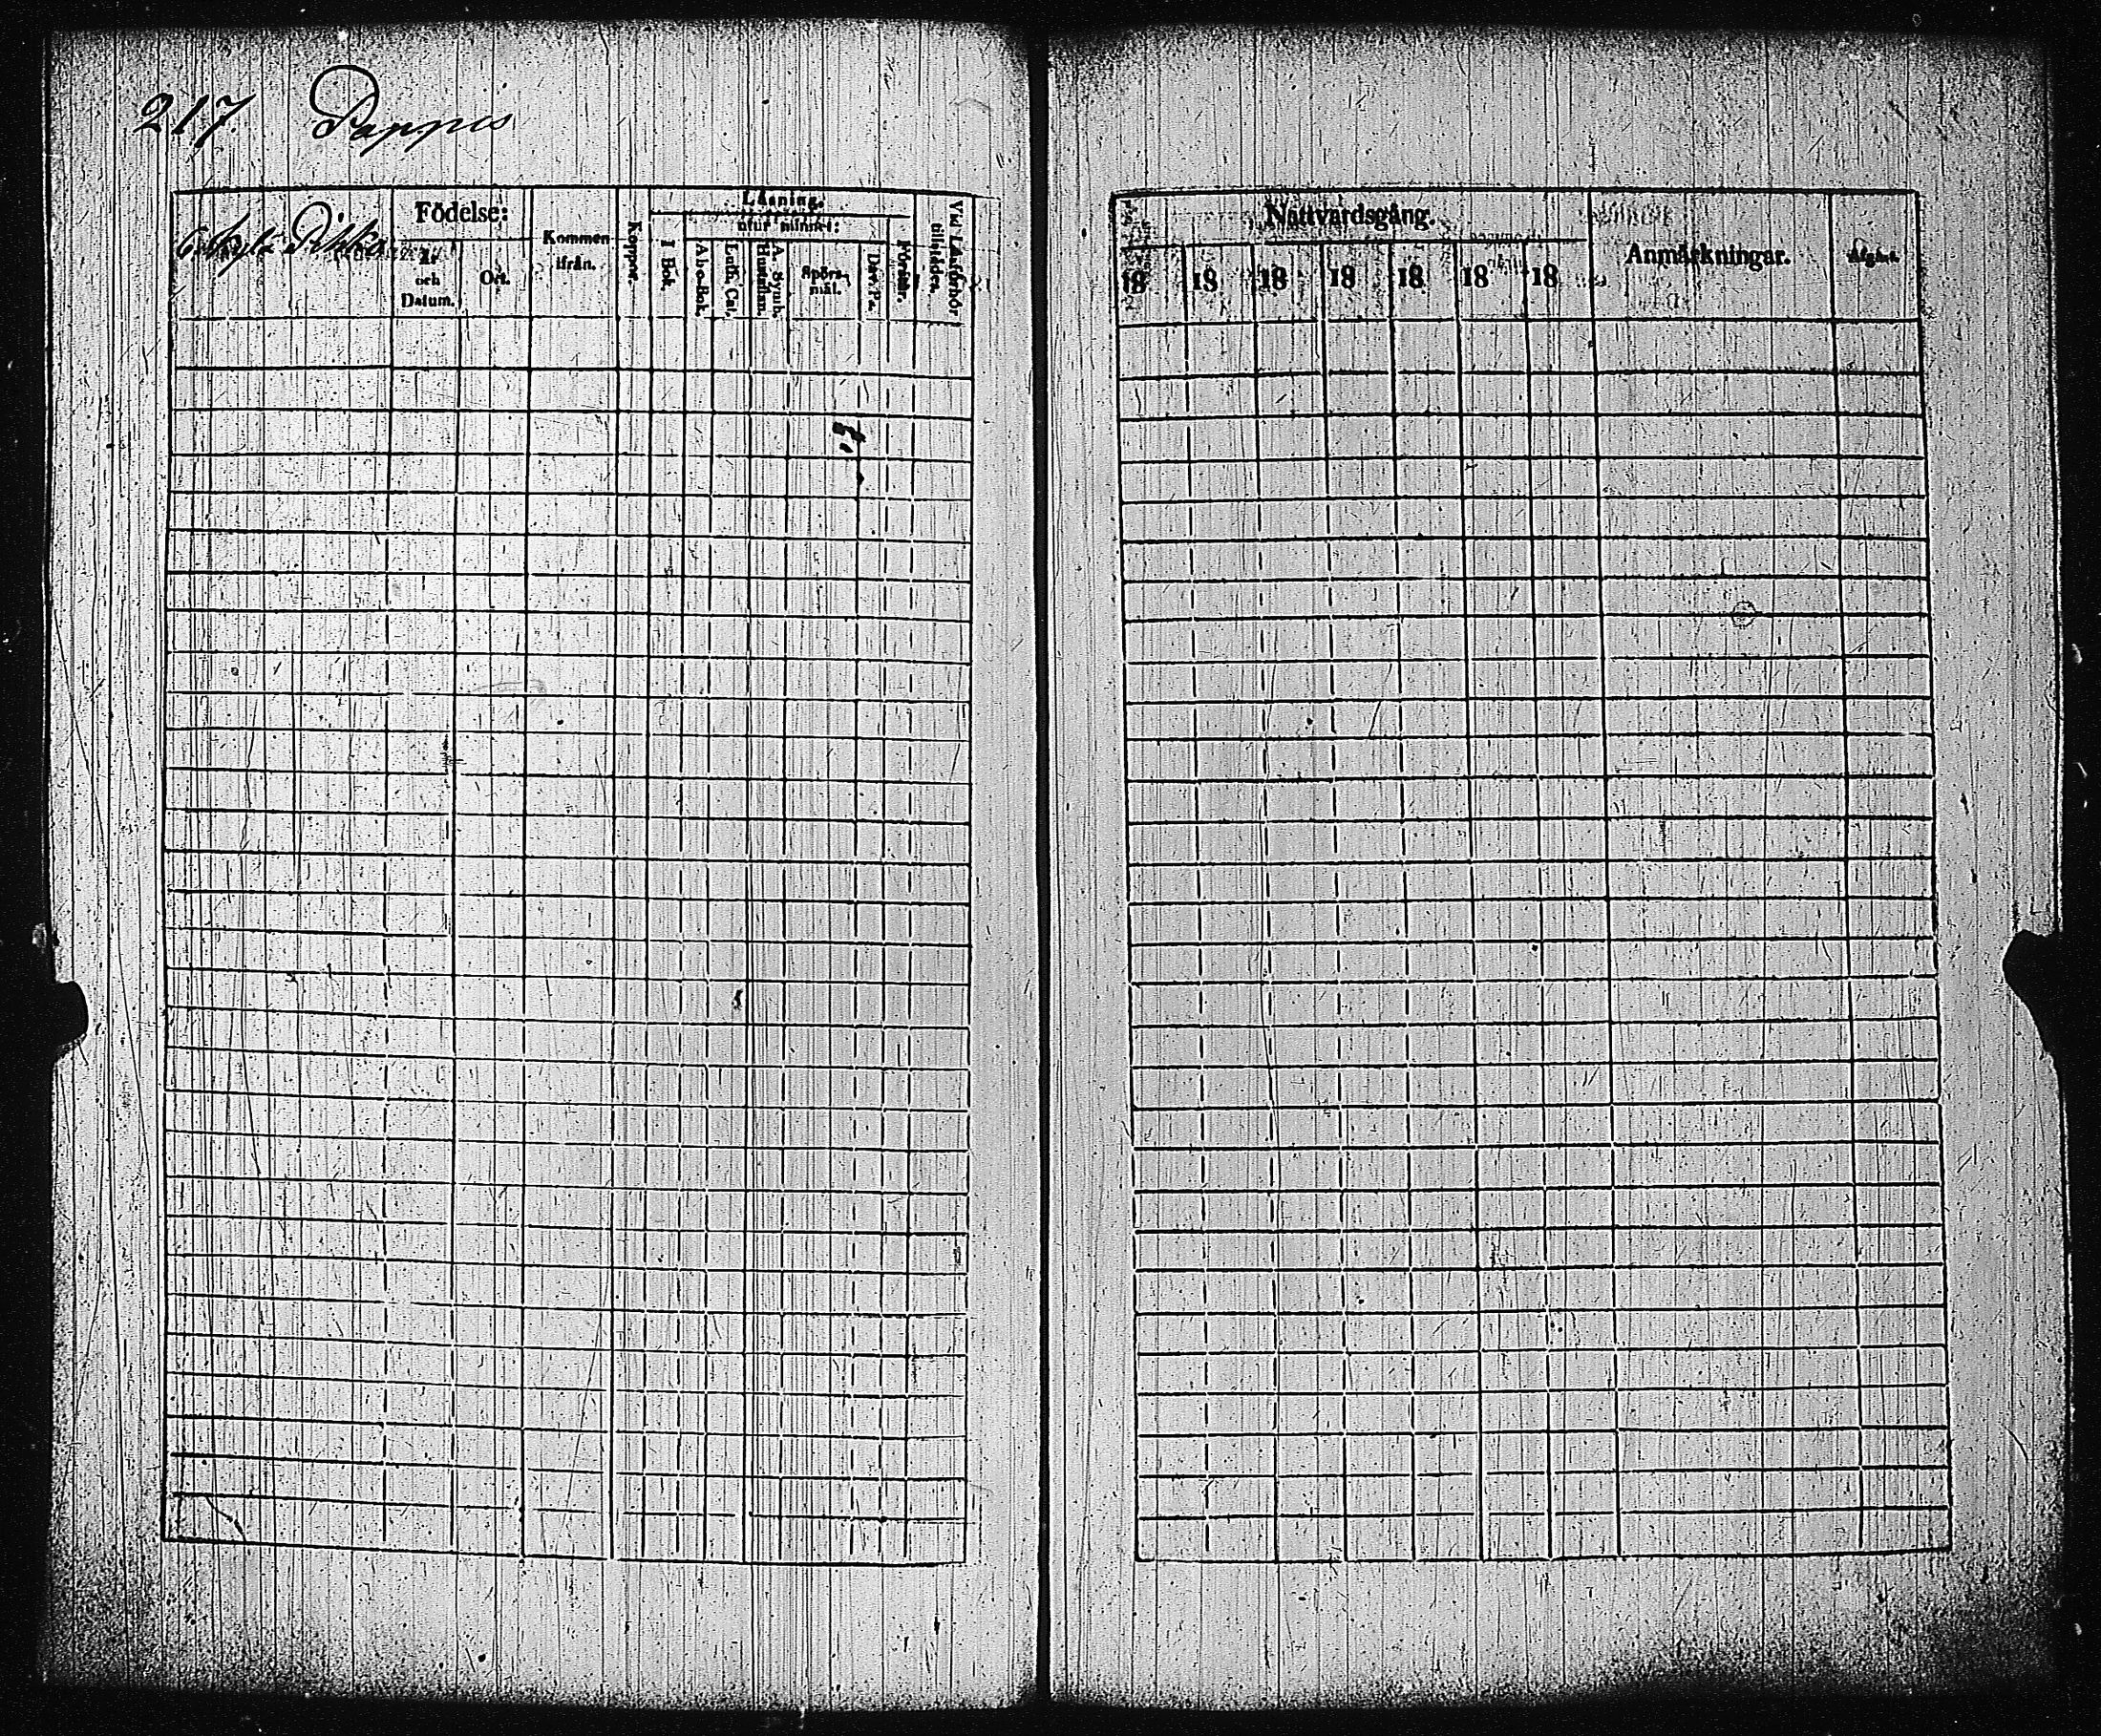 217. Pappis
Pikka
Födelse:
och
Datum.
Ort.
Kommen
ifrån.
Koppor.
Läsning.
utur minnet:
I Bok.
A b c-Bok.
Luth. Cat.
A. Symb.
Hustaflan.
Spörs-
mål.
Dav. Ps.
Förstår.
Vid Läsförhör
tillstädes.
Nattvardsgång.
18 18 18 18 18 18 18
Anmärkningar.
Afgått.